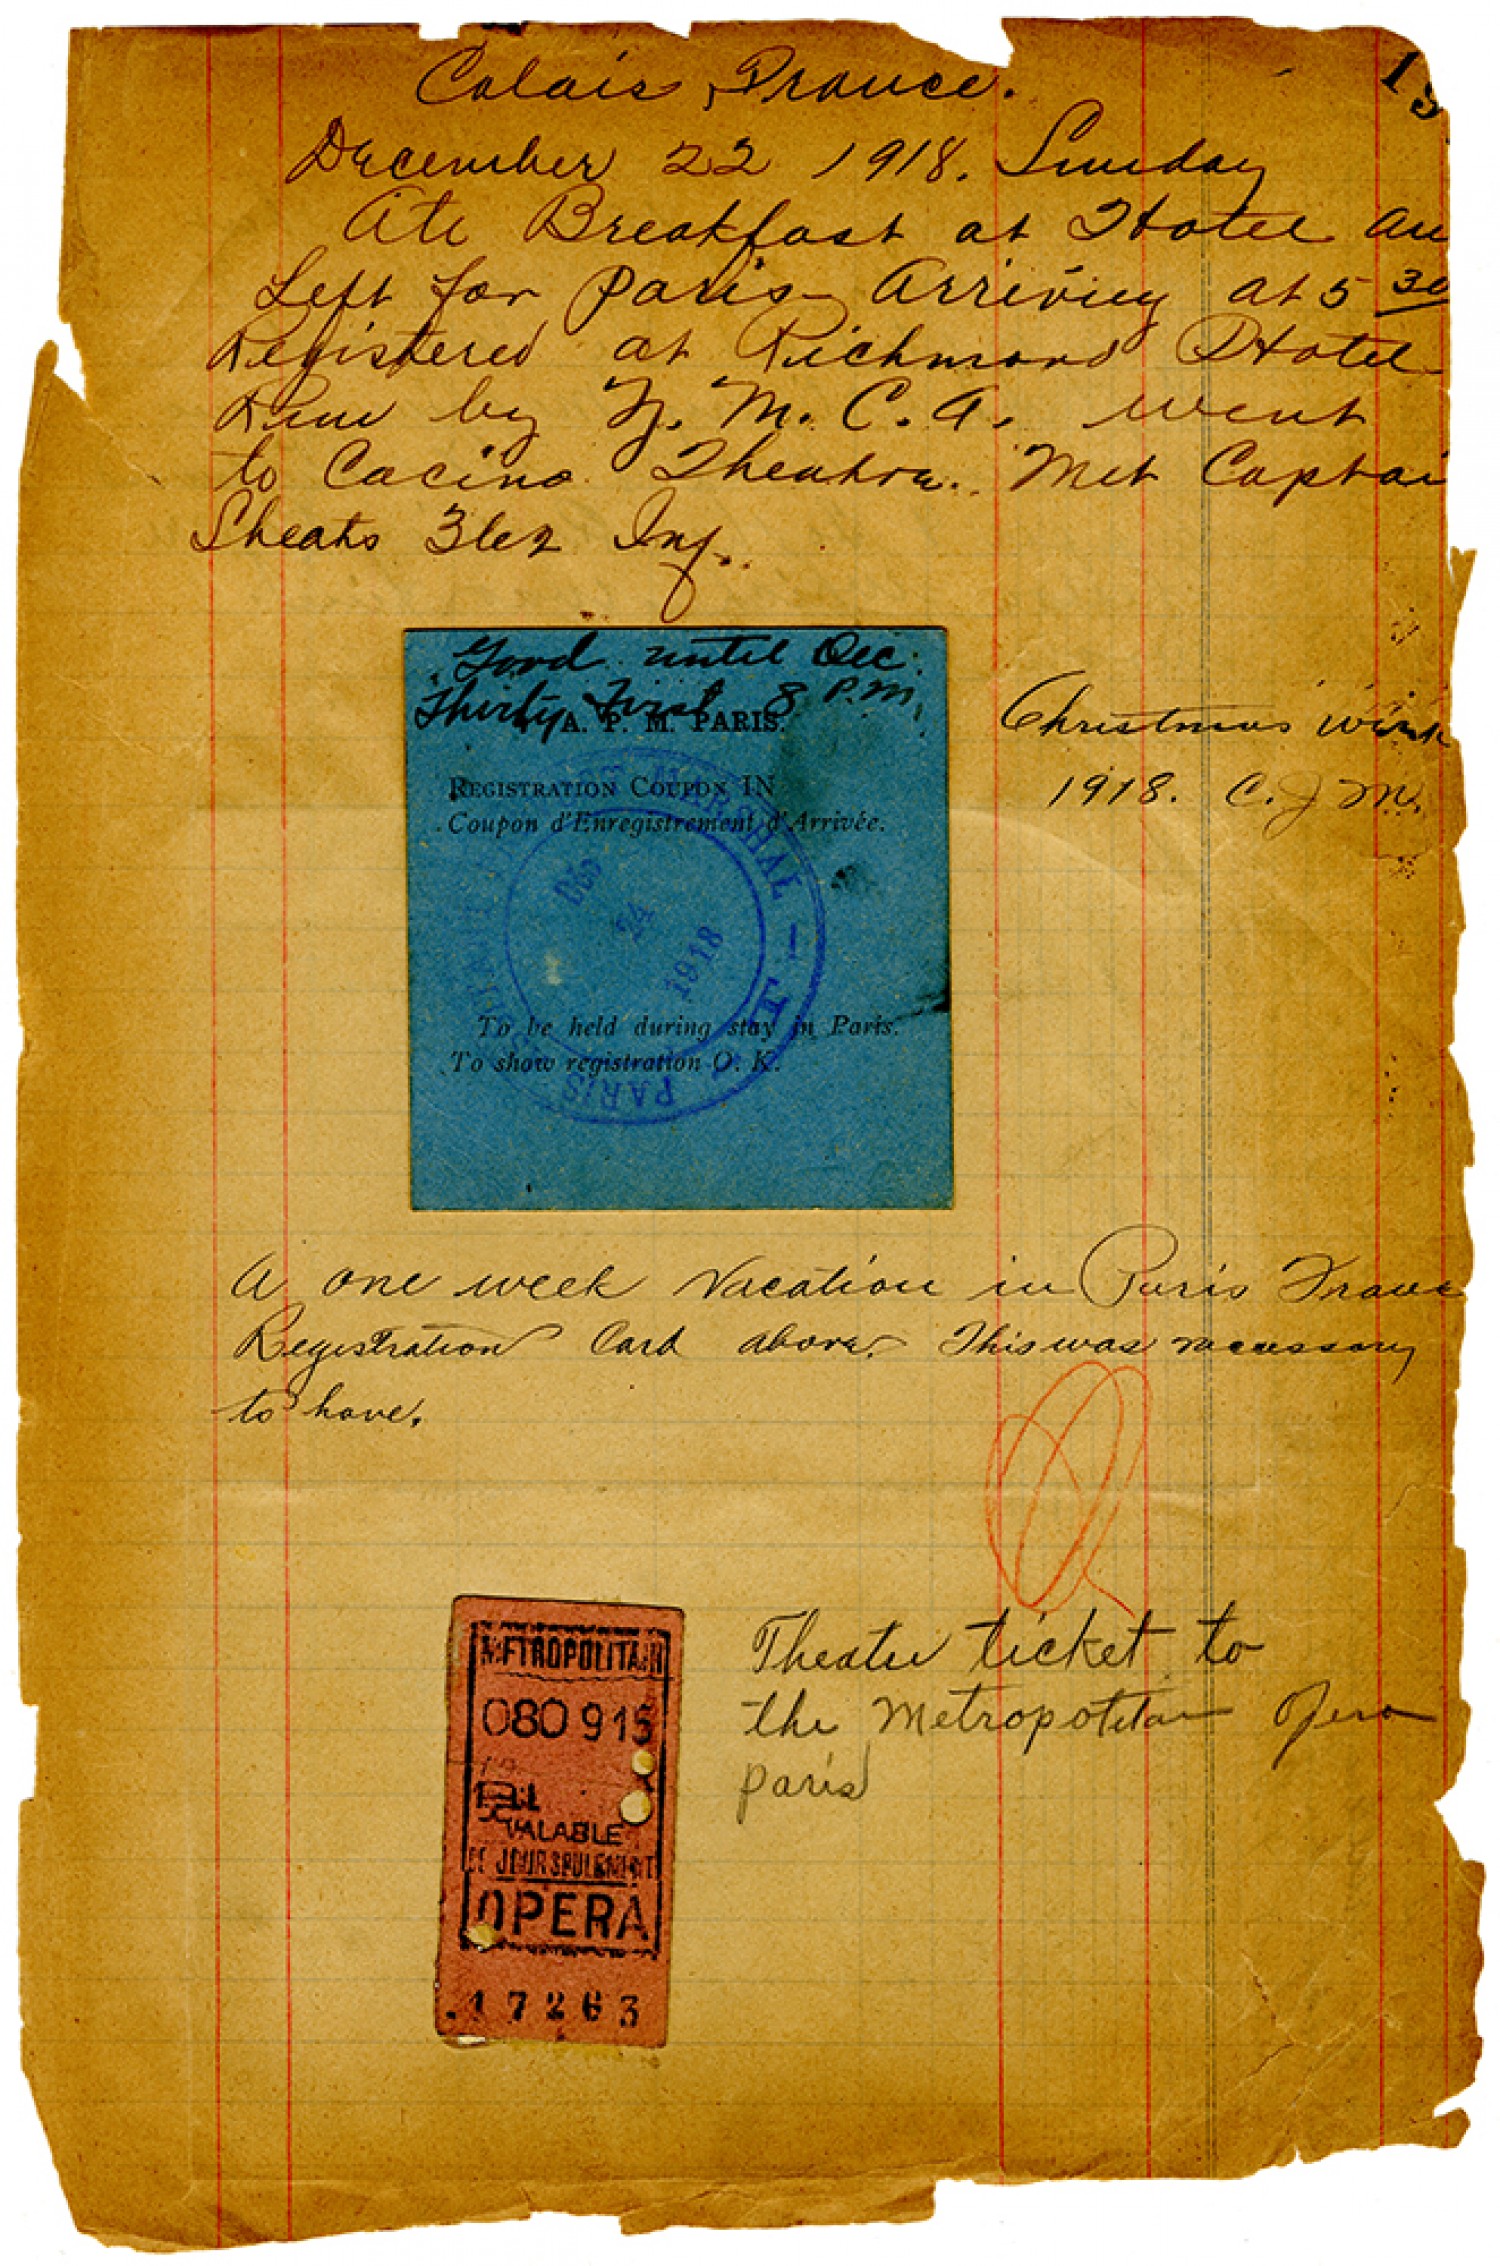 Calais, France.
December 22 1918. Sunday
Ate Breakfast at Hotel an
Left for Paris Arriving at 5 30
Registered at Richmond Hotel
Run by Y. M. C. A. went
to Cacino Theatre. Met Captai
Sheats 362 Inf.
Good until Dec.
Thirty First 8 P.M.
A. P. M. PARIS.
REGISTRATION COUPON IN
Coupon d'Enregistrement d'Arrivée.
MARSHAL
DEC
24
1918
PARIS
To be held during stay in Paris.
To show registration O. K.
Christmas
1918. C. J. M.
A one week Vacation in Paris Franc
Registration Card above. This was necessary
to have.
METROPOLITAIN
080915
VALABLE
CE JOUR SEULEMENT
OPERA
17263
Theatre ticket to
the Metropolitan Opera
paris